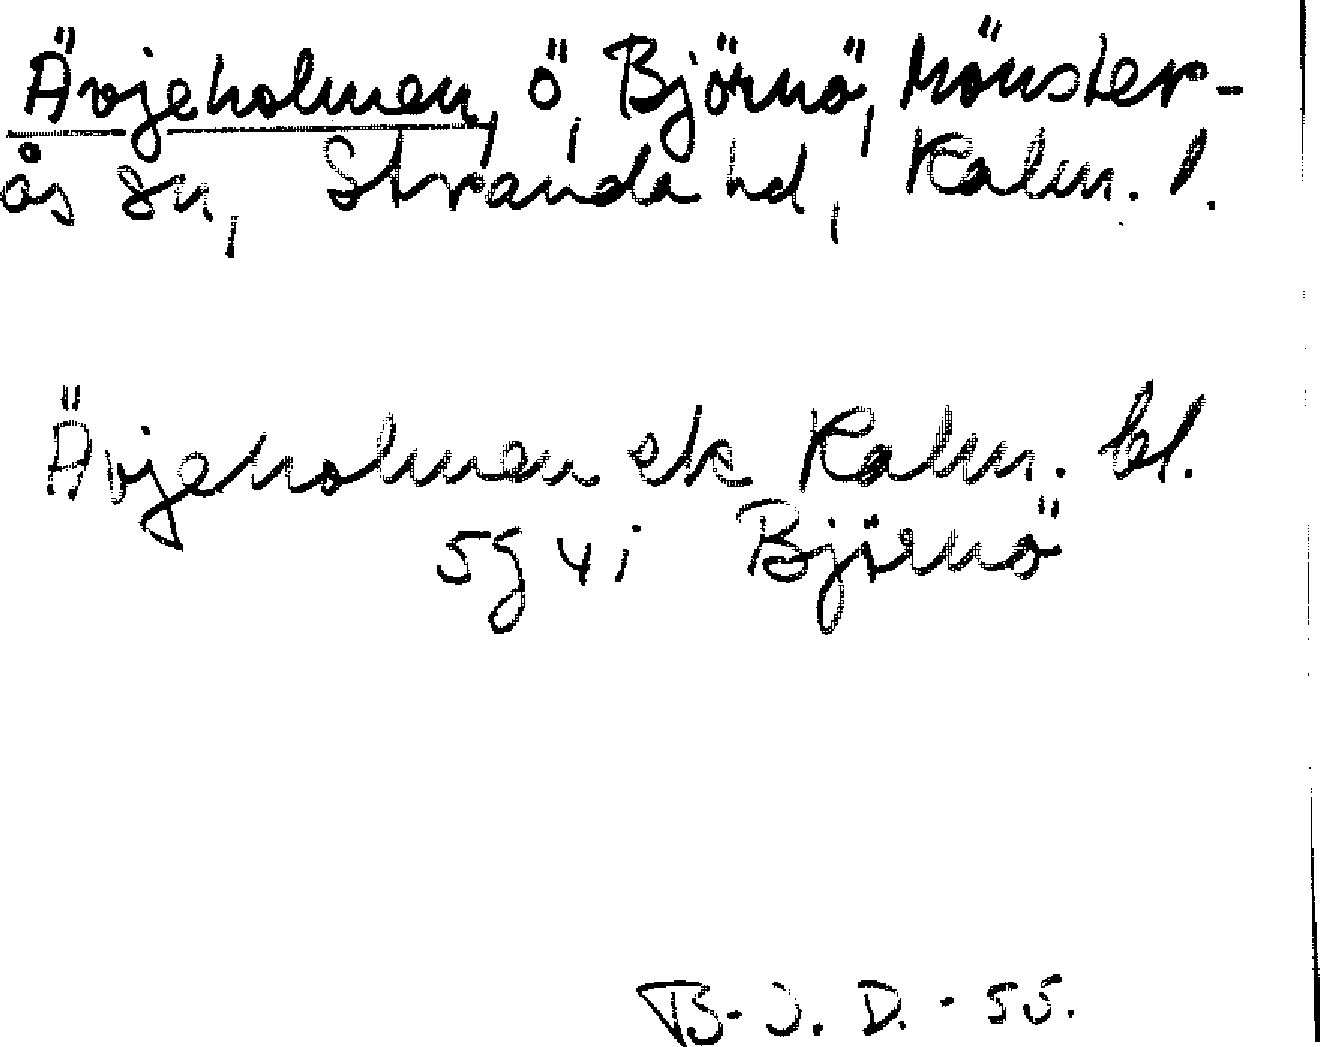 Ävjeholmen, ö, Björnö, Mönster-
ås sn, Stranda hd, Kalm. l.
Ävjeholmen ek Kalm. bl.
5g 4i Björnö
B-J. D. - 55.